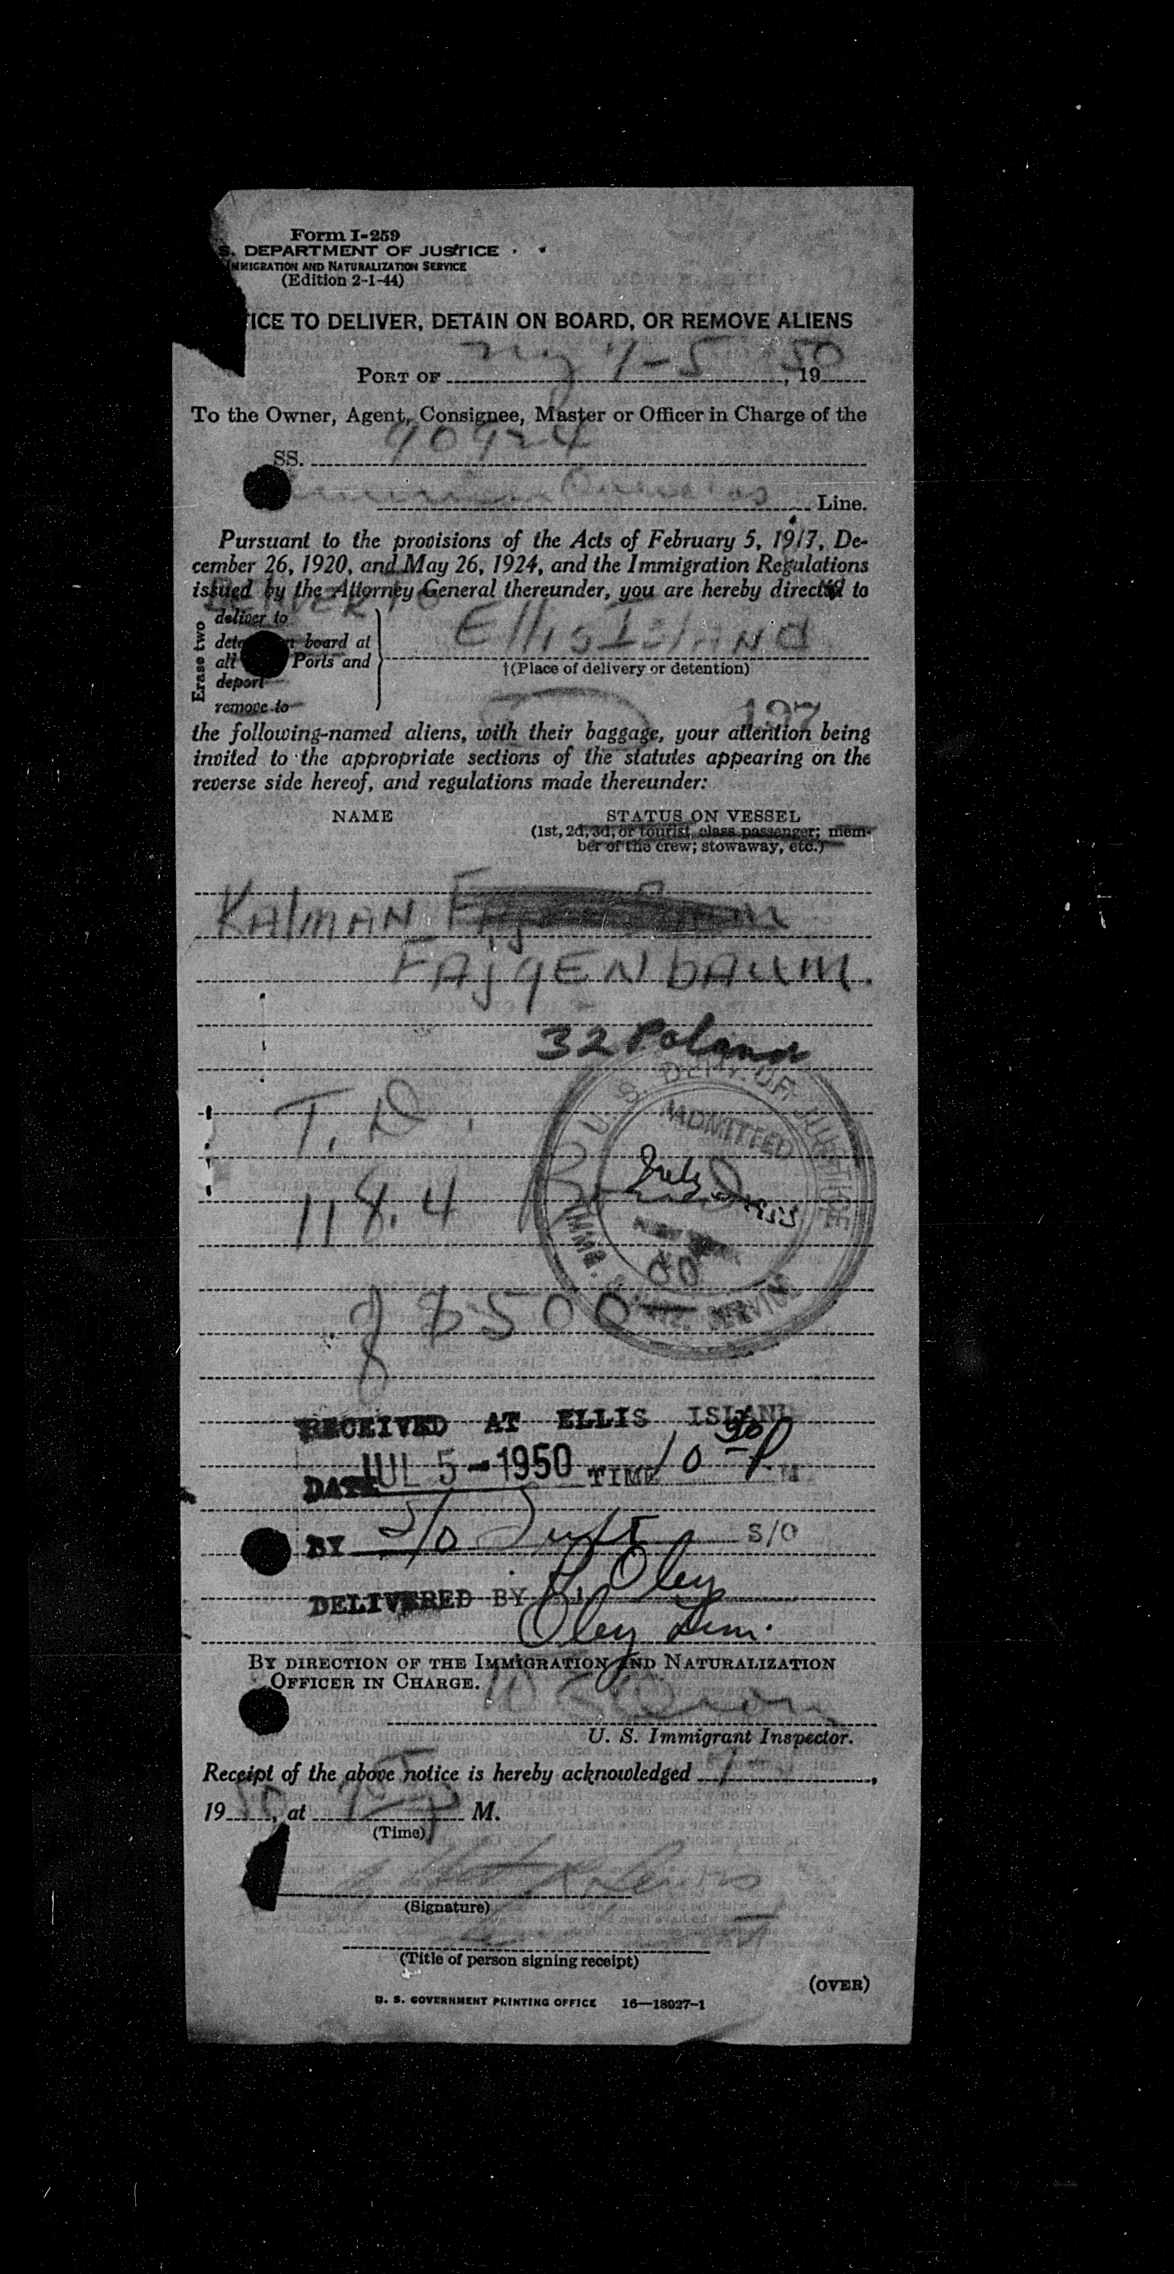 Form I-259
S. DEPARTMENT OF JUSTICE
IMMIGRATION AND NATURALIZATION SERVICE
(Edition 2-1-44)
ICE TO DELIVER, DETAIN ON BOARD, OR REMOVE ALIENS
PORT OF 7-5, 1950
To the Owner, Agent, Consignee, Master or Officer in Charge of the
SS. 90924
American Overseas Line.
Pursuant to the provisions of the Acts of February 5, 1917, De-
cember 26, 1920, and May 26, 1924, and the Immigration Regulations
issued by the Attorney General thereunder, you are hereby directed to
Erase two
deliver to
board at
all Ports and
deport
remove to
Ellis Island
†(Place of delivery or detention)
197
the following-named aliens, with their baggage, your attention being
invited to the appropriate sections of the statutes appearing on the
reverse side hereof, and regulations made thereunder:
NAME STATUS ON VESSEL
(1st, 2d, 3d, or tourist class passenger; mem-
ber of the crew; stowaway, etc.)
KALMAN
FAJGENBAUM.
32 Poland
U. S. DEPT. OF JUSTICE
ADMITTED
July
IMMI. SERVICE
T. D.
118.4
$500
RECEIVED AT ELLIS ISLAND
DATE JUL 5-1950 TIME 10 30 P M
BY S/O S/O
DELIVERED BY Oley
Oley
BY DIRECTION OF THE IMMIGRATION AND NATURALIZATION
OFFICER IN CHARGE.
U. S. Immigrant Inspector.
Receipt of the above notice is hereby acknowledged 7-5,
1950, at M.
(Time)
(Signature)
(Title of person signing receipt)
(OVER)
U. S. GOVERNMENT PRINTING OFFICE 16—18027-1